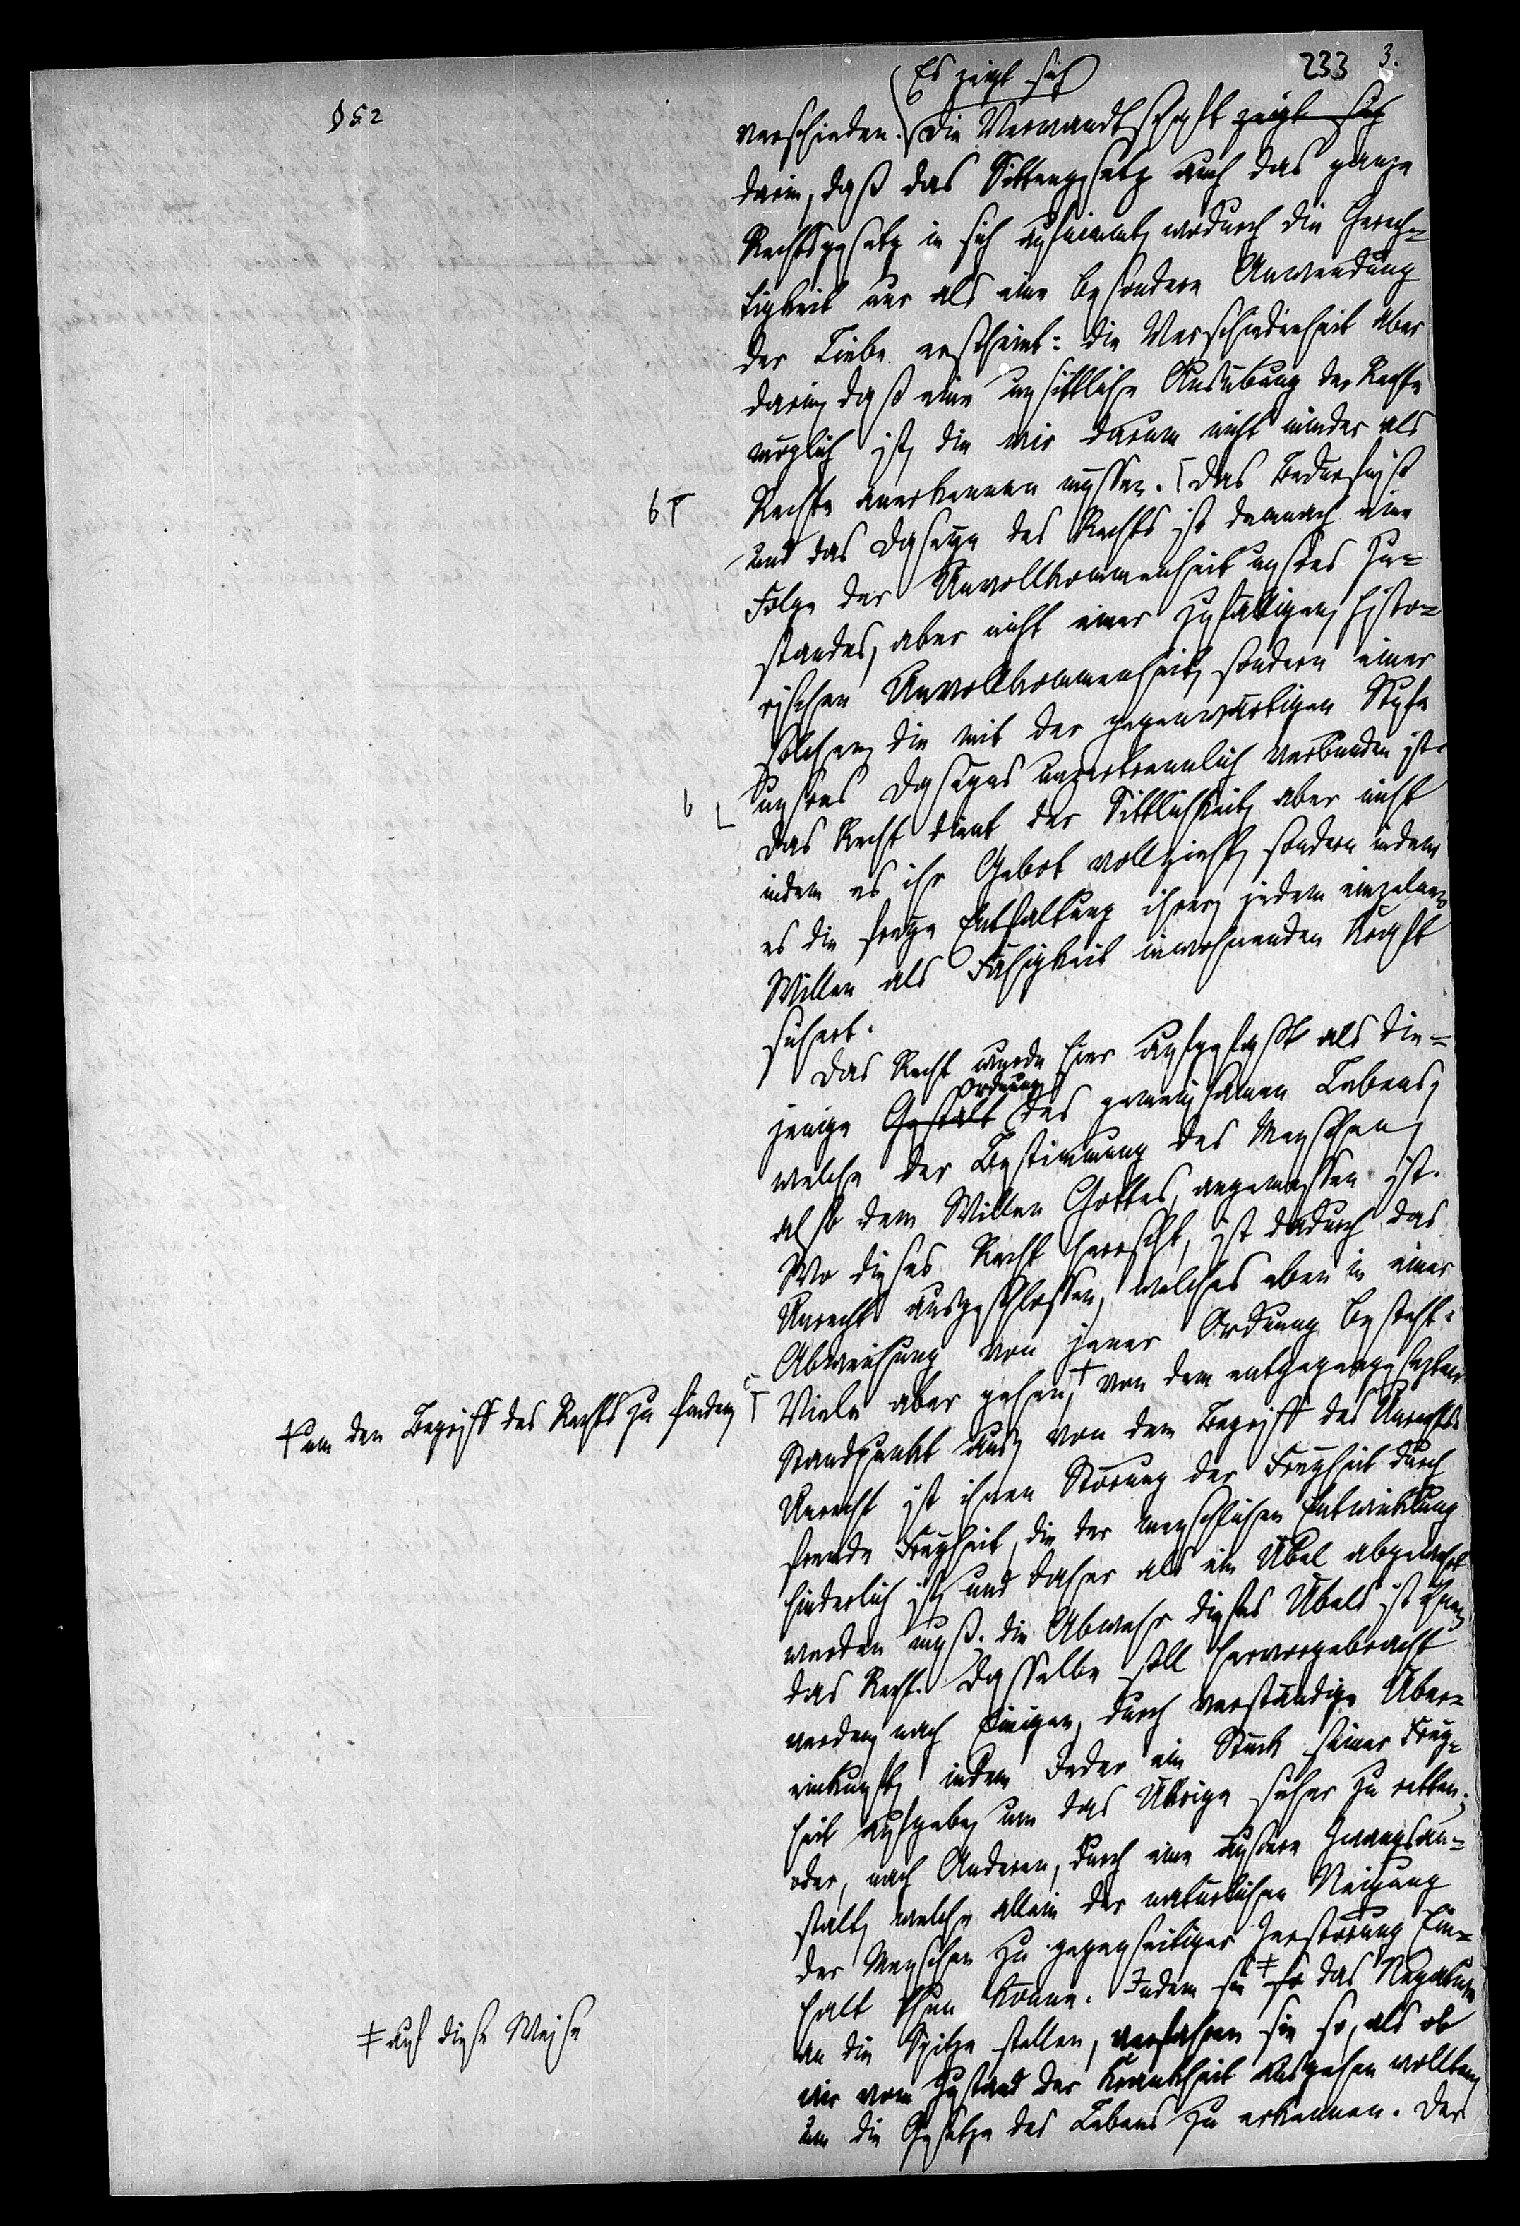 233 3.
§ 52
Es zeigt sich
verschieden. Die Verwandtschaft zeigt sich
darin, daß das Sittengesetz auch das ganze
Rechtsgesetz in sich aufnimmt, wodurch die Gerech=
tigkeit nur als eine besondere Anwendung
der Liebe erscheint: die Verschiedenheit aber
darin, daß eine unsittliche Ausübung der Rechte
möglich ist, die wir darum nicht minder als
Rechte anerkennen müssen. Das Bedürfniß
b
und das Daseyn des Rechts ist demnach eine
Folge der Unvollkommenheit unsres Zu=
standes, aber nicht einer zufälligen, histo=
rischen Unvollkommenheit, sondern einer
solchen, die mit der gegenwärtigen Stufe
unsres Daseyns unzertrennlich verbunden ist.
b
Das Recht dient der Sittlichkeit, aber nicht
indem es ihr Gebot vollzieht, sondern indem
es die freye Entfaltung ihrer, jedem einzelnen
Willen als Fähigkeit inwohnenden Kraft
sichert.
Das Recht wurde hier aufgefaßt als die=
Ordnung
jenige Gestalt des gemeinsamen Lebens,
welche der Bestimmung des Menschen,
also dem Willen Gottes, angemessen ist.
Wo dieses Recht herrscht, ist dadurch das
Unrecht ausgeschlossen, welches eben in einer
Abweichung von jener Ordnung besteht.
c
Viele aber gehen,+ von dem entgegengesetzten
+ um den Begriff des Rechts zu finden,
Standpunkt aus, von dem Begriff des Unrechts
Unrecht ist ihnen Störung der Freyheit durch
fremde Freyheit, die der menschlichen Entwicklung
hinderlich ist, und daher als ein Übel abgewehrt
werden muß. Die Abwehr dieses Übels ist ihnen
das Recht. Dasselbe soll hervorgebracht
werden, nach Einigen, durch verständige Über=
einkunft, indem Jeder ein Stück seiner Frey=
heit aufgebe, um das Übrige sicher zu retten;
oder, nach Anderen, durch eine äußere Zwangsan=
stalt, welche allein der natürlichen Neigung
der Menschen zu gegenseitiger Zerstörung Ein=
halt thun könne. Indem sie ‡ so das Negative
‡ auf diese Weise
an die Spitze stellen, verfahren sie so, als ob
wir vom Zustand der Krankheit ausgehen wollten,
um die Gesetze des Lebens zu erkennen. Der